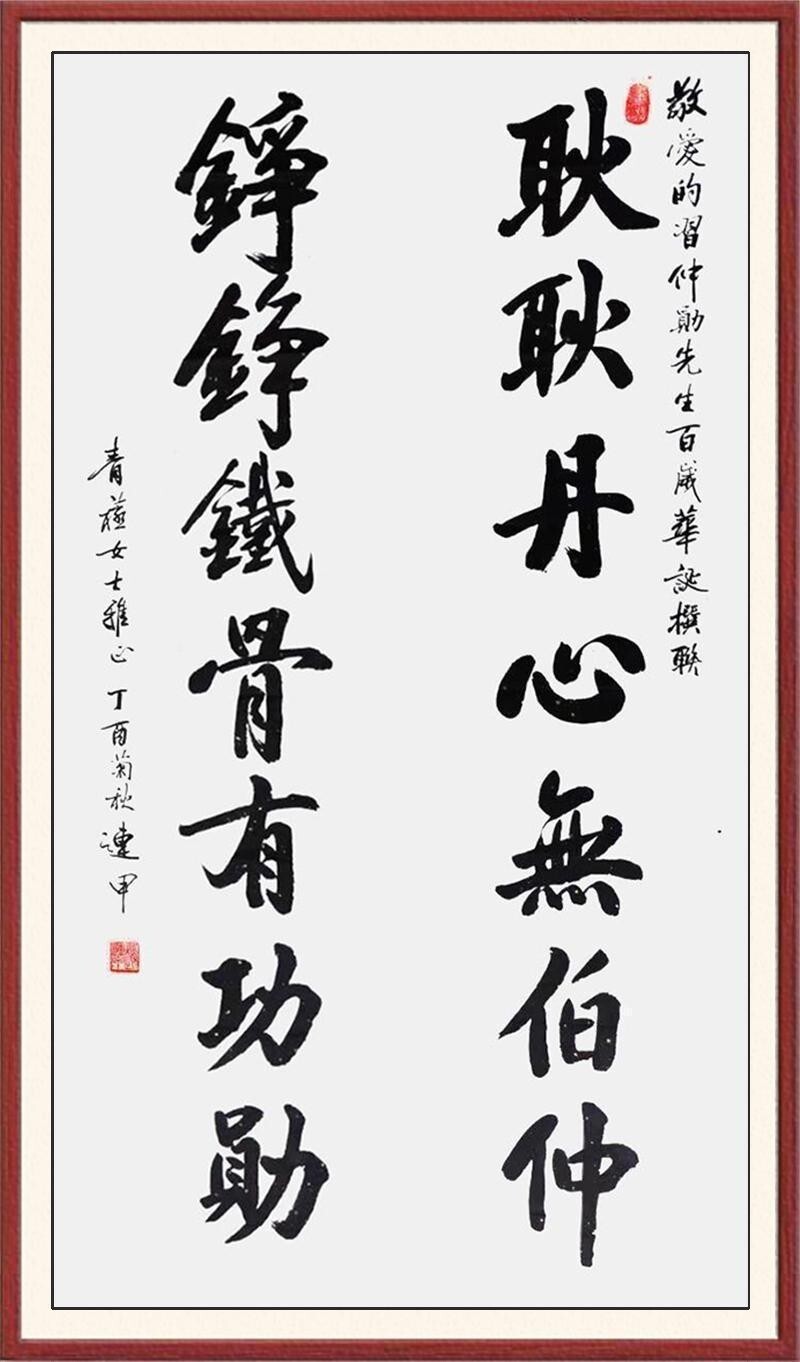 敬愛的習仲勛先生百歲華誕撰聯
耿耿丹心無伯仲
錚錚鐵骨有功勛
青蘊女士雅正 丁酉菊秋 連甲